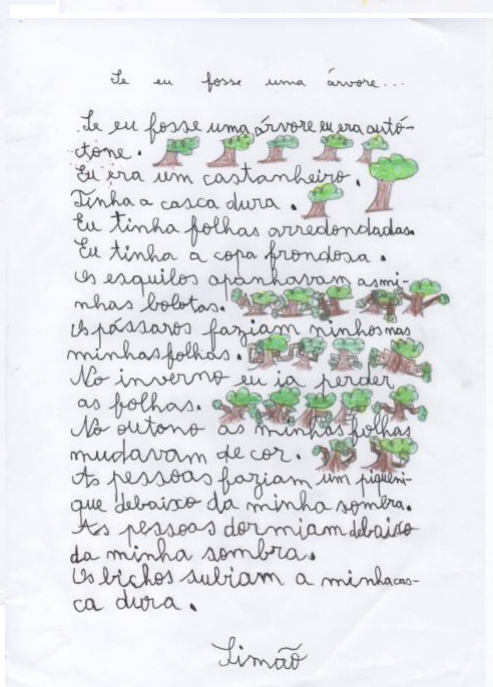 Se eu fosse uma árvore...
Se eu fosse uma árvore eu era autó-
ctone.
Eu era um castanheiro.
Tinha a casca dura.
Eu tinha folhas arredondadas.
Eu tinha a copa frondosa.
Os esquilos apanhavam as mi-
nhas bolotas.
Os pássaros faziam ninhos nas
minhas folhas.
No inverno eu ia perder
as folhas.
No outono as minhas folhas
mudavam de cor.
As pessoas faziam um piqueni-
que debaixo da minha sombra.
As pessoas dormiam debaixo
da minha sombra.
Os bichos subiam a minha cas-
ca dura.
Simão